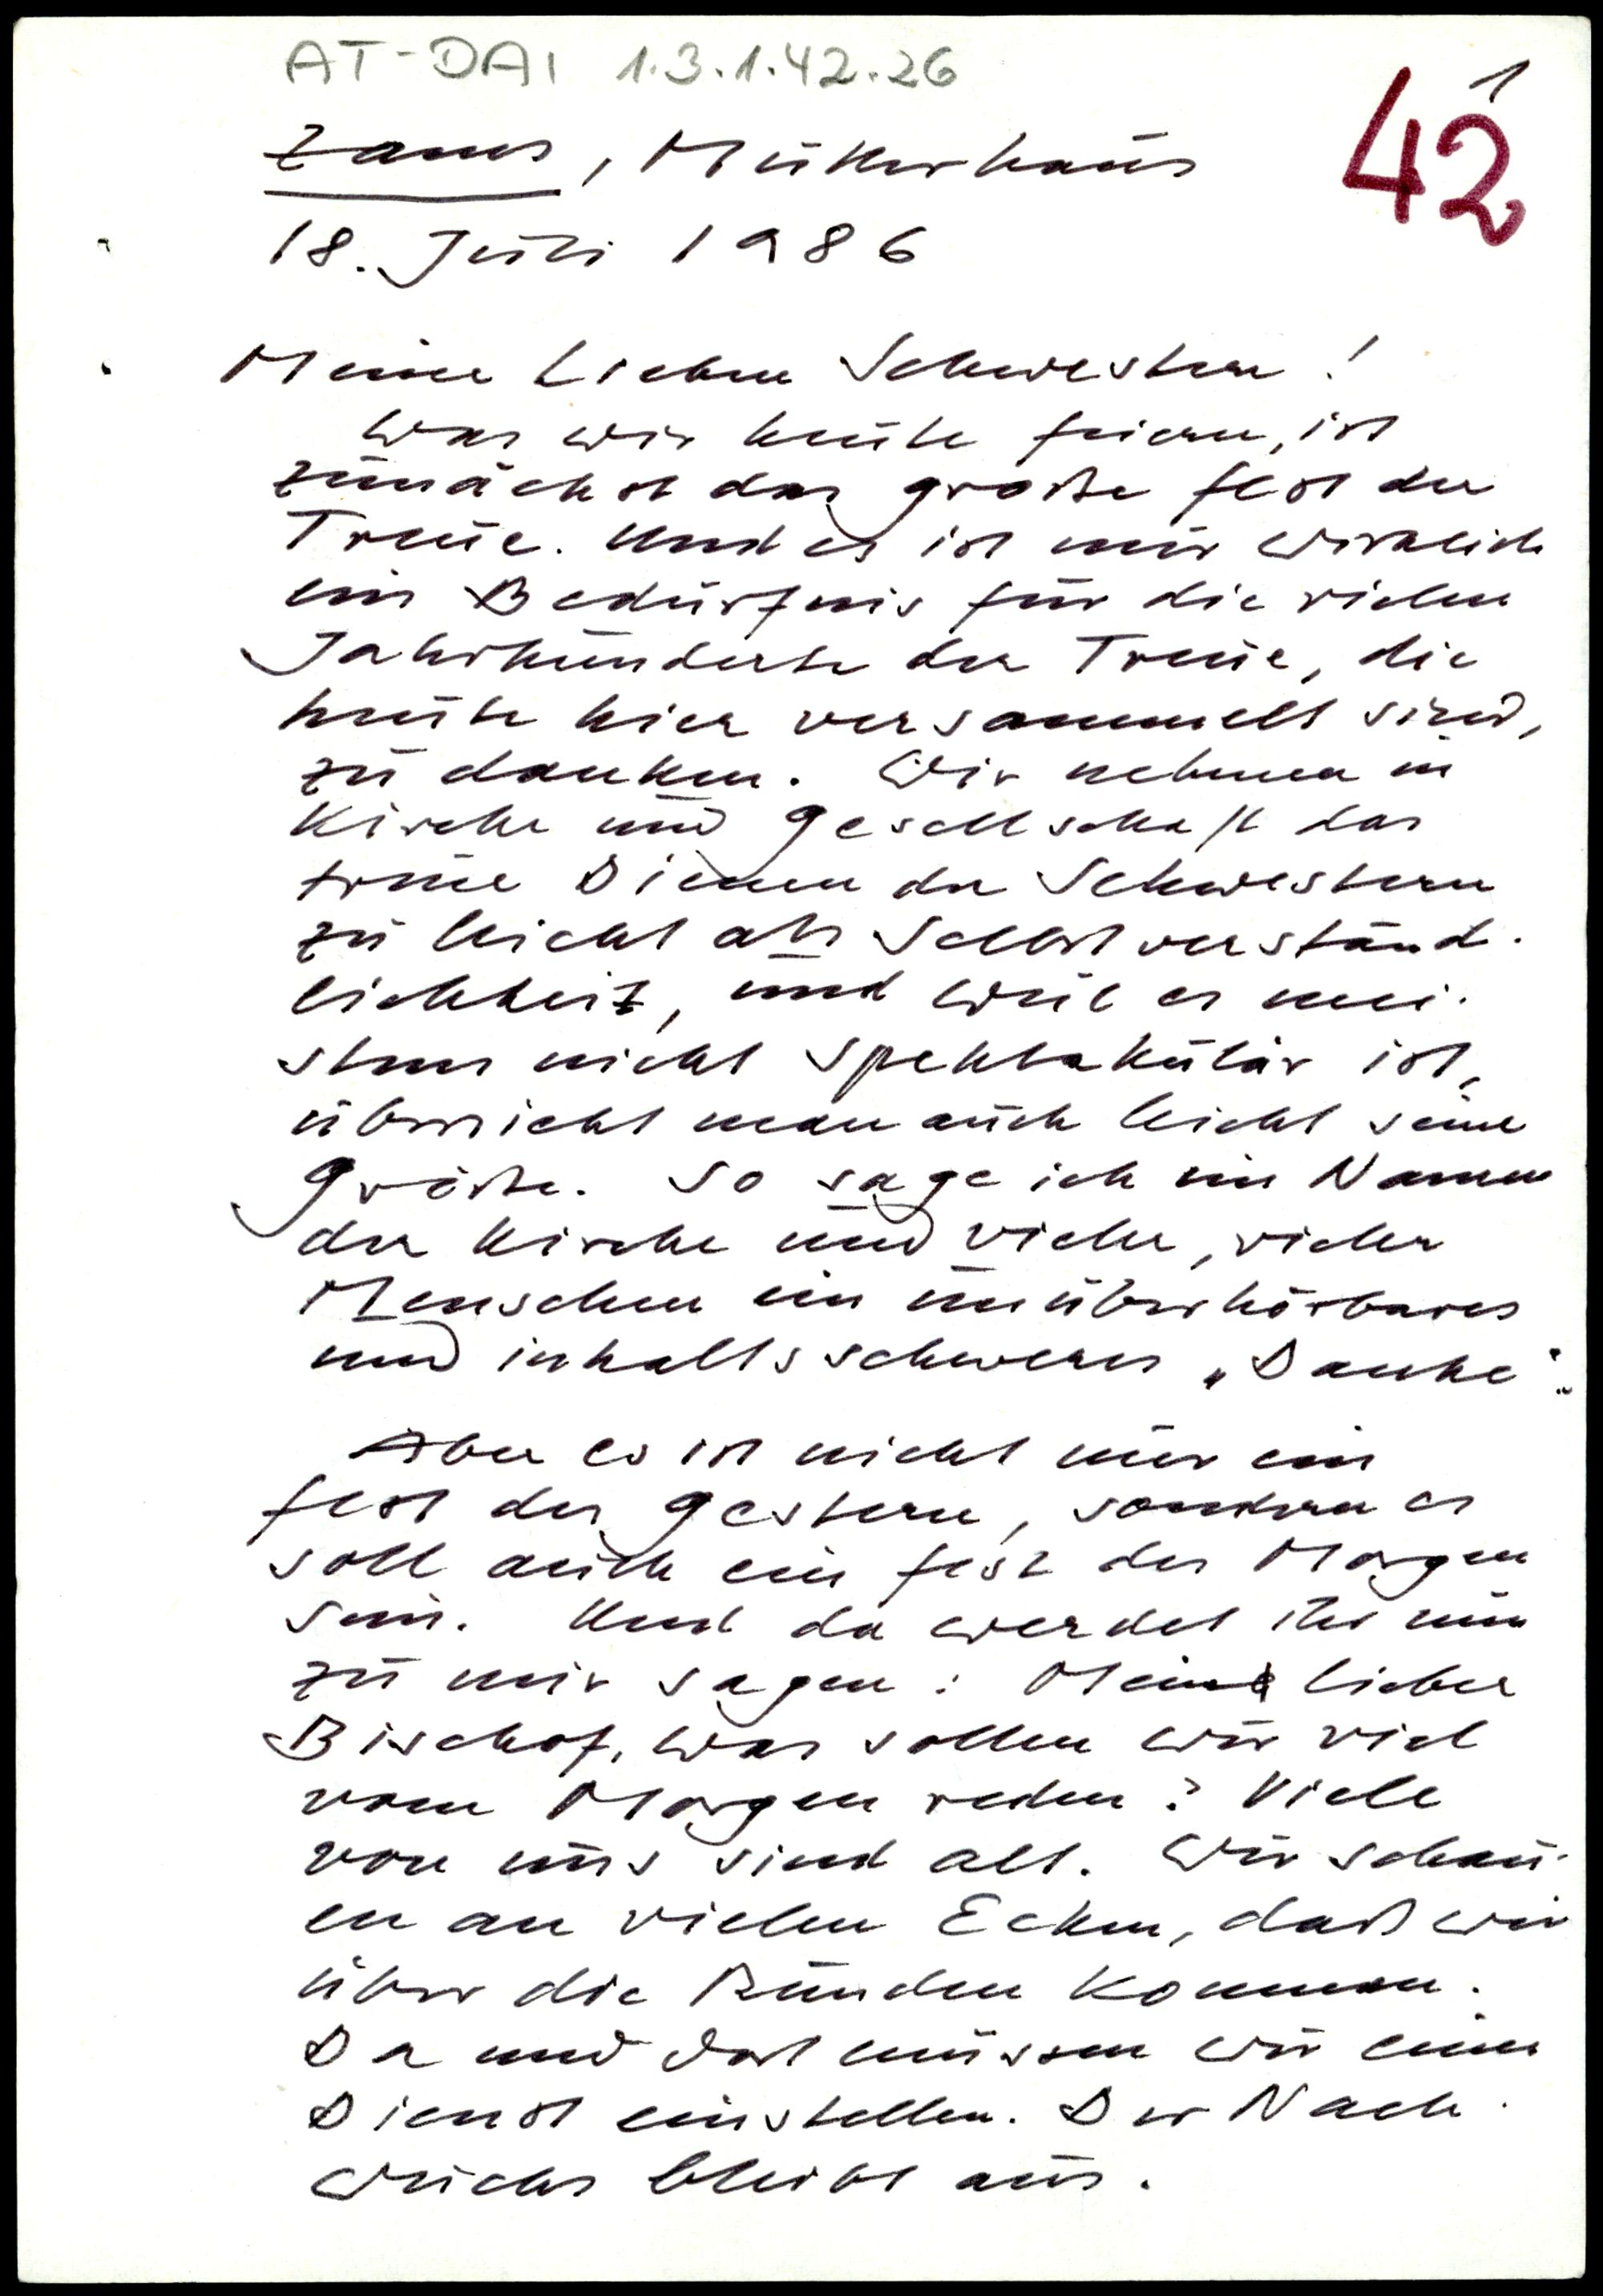 AT-DAI 1.3.1.42.26
1
42
Zams, Mutterhaus
18. Juli 1986
Meine lieben Schwestern!
Was wir heute feiern, ist
zunächst das große Fest der
Treue. Und es ist mir wirklich
ein Bedürfnis für die vielen
Jahrhunderte der Treue, die
heute hier versammelt sind,
zu danken. Wir nehmen in
Kirche und Gesellschaft das
treue Dienen der Schwestern
zu leicht als Selbstverständ-
lichkeit, und weil es mei-
stens nicht spektakulär ist,
übersieht man auch leicht seine
Größe. So sage ich im Namen
der Kirche und vieler, vieler
Menschen ein unüberhörbares
und inhaltsschweres „Danke“.
Aber es ist nicht nur ein
Fest des Gestern, sondern es
soll auch ein Fest des Morgen
sein. Und da werdet ihr nun
zu mir sagen: Mein lieber
Bischof, was sollen wir viel
vom Morgen reden? Viele
von uns sind alt. Wir schau-
en an vielen Ecken, daß wir
über die Runden kommen.
Da und dort müssen wir einen
Dienst einstellen. Der Nach-
wuchs bleibt aus.